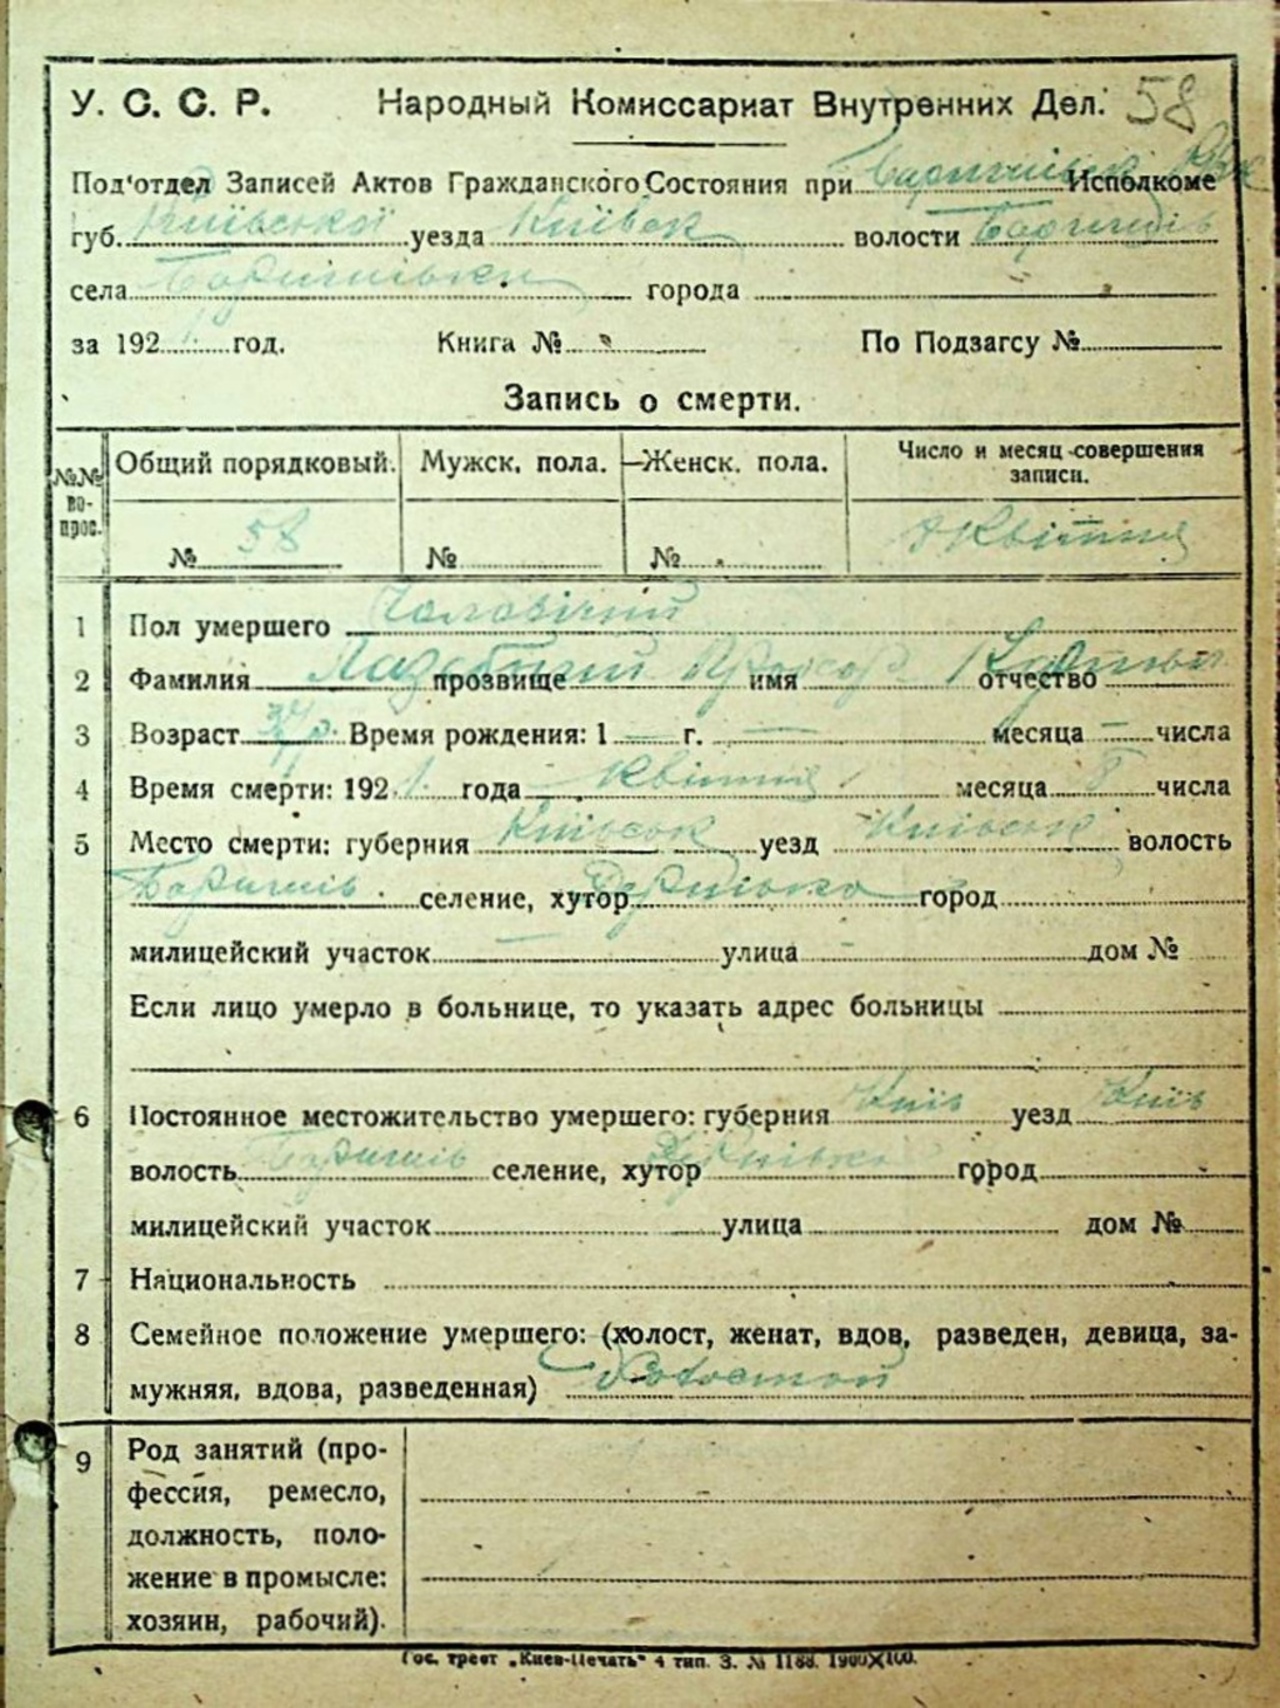 У. С. С. Р. Народный Комиссариат Внутренних Дел. 58
Под'отдел Записей Актов Гражданского Состояния при Исполкоме
губ. Київської уезда Київськ волости Баришів
села Баришівки города
за 192 год. Книга № По Подзагсу №
Запись о смерти.
№№ вопрос. Общий порядковый. Мужск. пола. Женск. пола. Число и месяц совершения записи.
№ 58 № № Квітня
1 Пол умершего Чоловічий
2 Фамилия прозвище имя Прохор отчество
3 Возраст 34 р. Время рождения: 1 — г. — месяца — числа
4 Время смерти: 192 1. года Квітня месяца 8 числа
5 Место смерти: губерния Київськ уезд Київськ волость
Баришів селение, хутор город
милицейский участок — улица — дом №
Если лицо умерло в больнице, то указать адрес больницы
6 Постоянное местожительство умершего: губерния Київ уезд Київ
волость Баришів селение, хутор город
милицейский участок улица дом №
7 Национальность
8 Семейное положение умершего: (холост, женат, вдов, разведен, девица, за-
мужняя, вдова, разведенная) Холостой
9 Род занятий (про-
фессия, ремесло,
должность, поло-
жение в промысле:
хозяин, рабочий).
Гос. трест „Киев-Печать" 4 тип. З. № 1188. 1900×100.